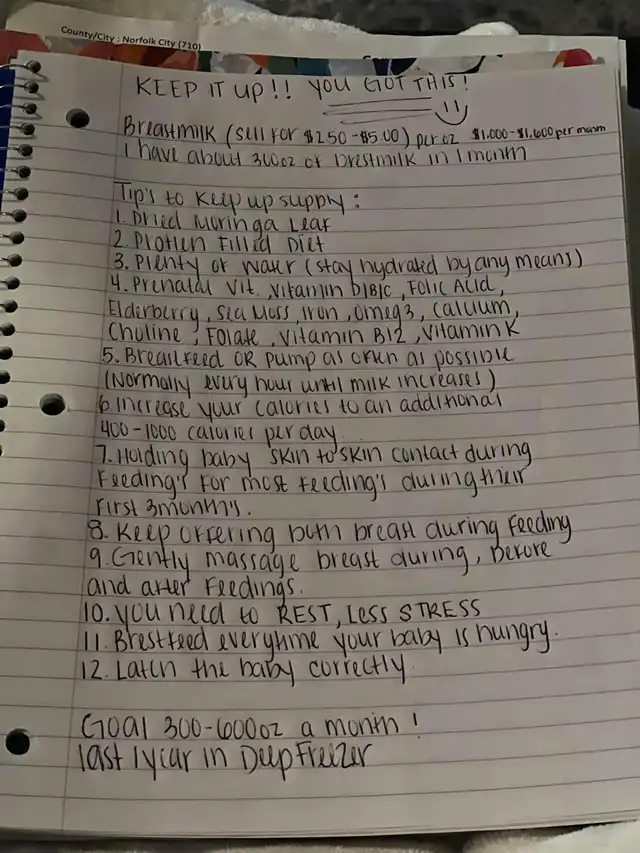 County/City : Norfolk City (710)
KEEP IT UP!! YOU GOT THIS!
Breastmilk (sell for $2.50-$5.00) per oz $1,000-$1,600 per month
I have about 300oz of brestmilk in 1 month
Tip's to keep up supply:
1. Dried Moringa Leaf
2. Protien Filled Diet
3. Plenty of Water (stay hydrated by any means)
4. Prenatal Vit. Vitamin D/B/C, Folic Acid,
Elderberry, Sea Moss, Iron, Omega3, Calcium,
Choline, Folate, Vitamin B12, Vitamin K
5. Breastfeed OR Pump as often as possible
(Normally every hour until milk increases)
6. Increase your calories to an additional
400-1000 calories per day
7. Holding baby skin to skin contact during
Feeding's for most feeding's during their
first 3 month's.
8. Keep offering both breast during feeding
9. Gently massage breast during, before
and after Feedings.
10. you need to REST, Less STRESS
11. Brestfeed everytime your baby is hungry.
12. Latch the baby correctly
Goal 300-600oz a month!
last 1 year in Deep Freezer